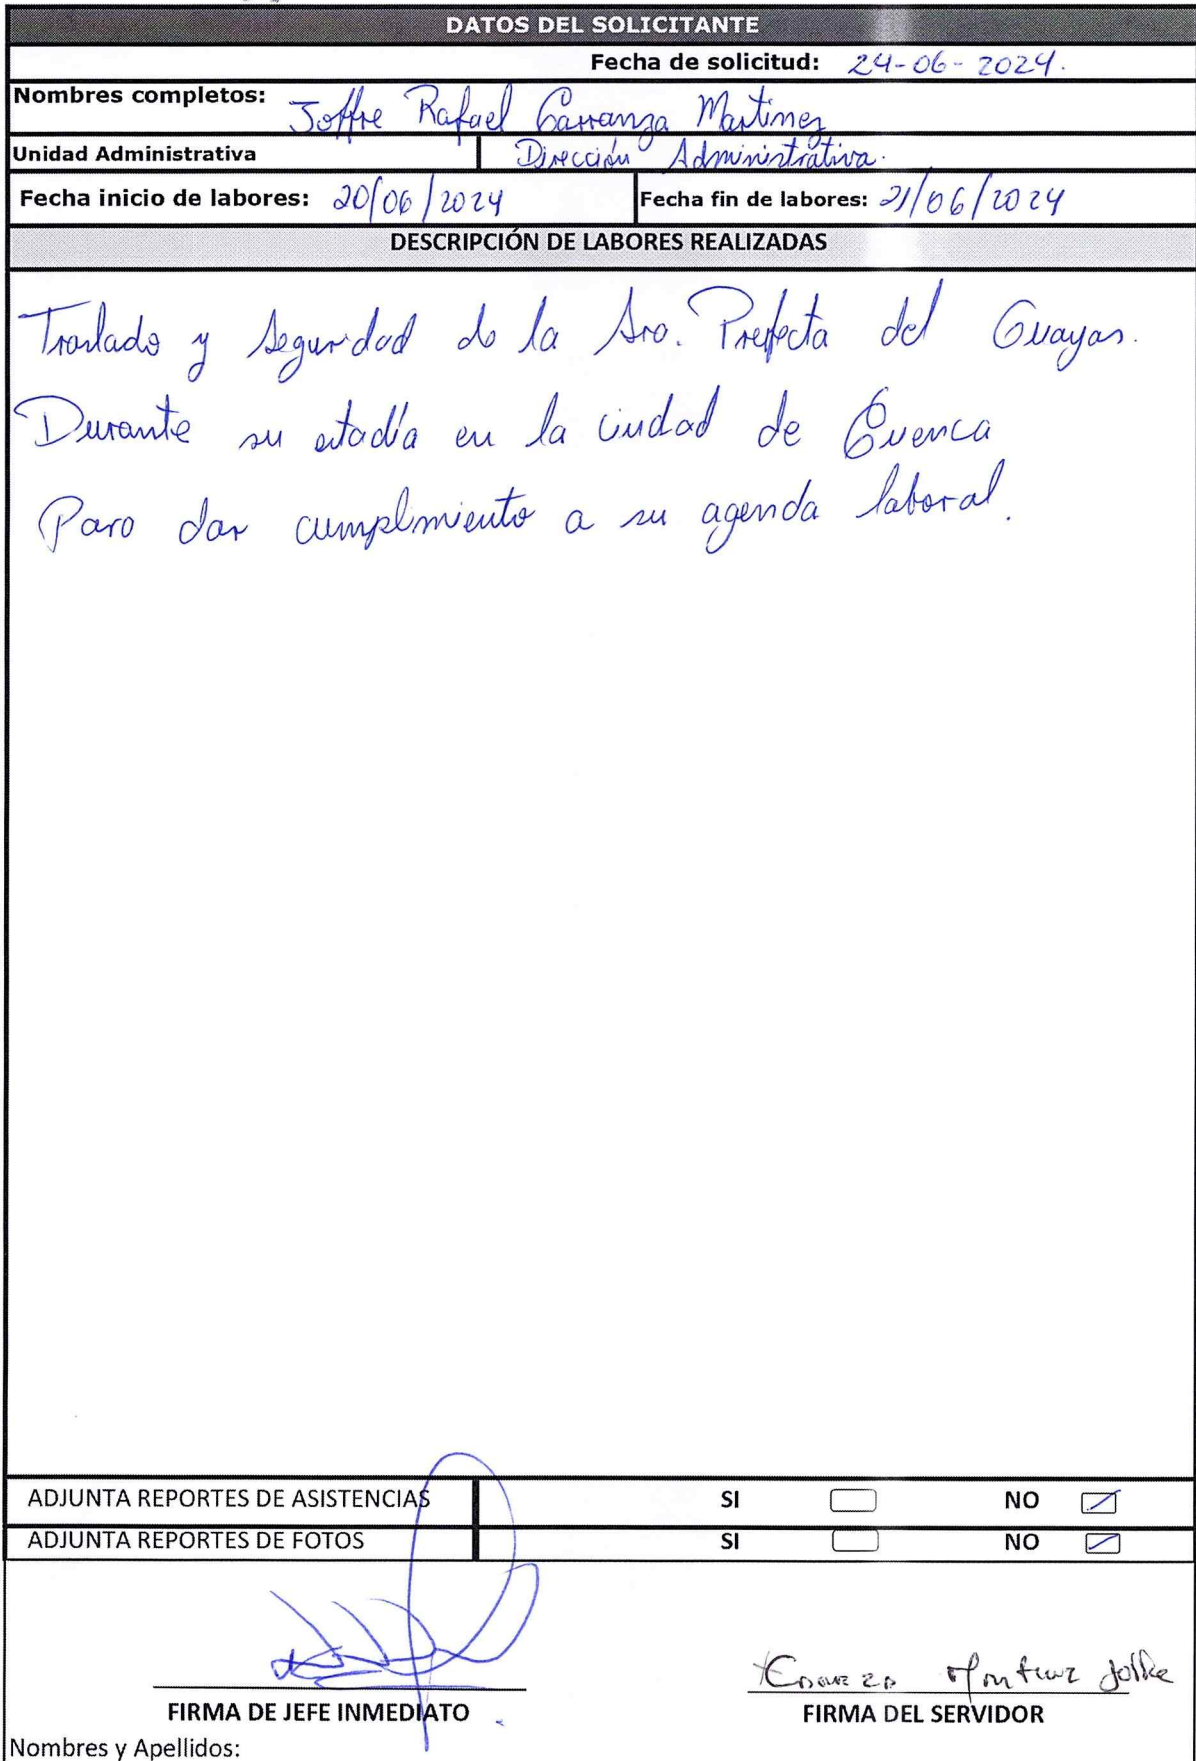 DATOS DEL SOLICITANTE
Fecha de solicitud: 24-06-2024.
Nombres completos: Joffre Rafael Carranza Martinez
Unidad Administrativa Dirección Administrativa.
Fecha inicio de labores: 20/06/2024 Fecha fin de labores: 21/06/2024
DESCRIPCIÓN DE LABORES REALIZADAS
Traslado y seguridad de la Sra. Prefecta del Guayas.
Durante su estadía en la ciudad de Cuenca
Para dar cumplimiento a su agenda laboral.
ADJUNTA REPORTES DE ASISTENCIAS SI NO
ADJUNTA REPORTES DE FOTOS SI NO
FIRMA DE JEFE INMEDIATO
FIRMA DEL SERVIDOR
Nombres y Apellidos: